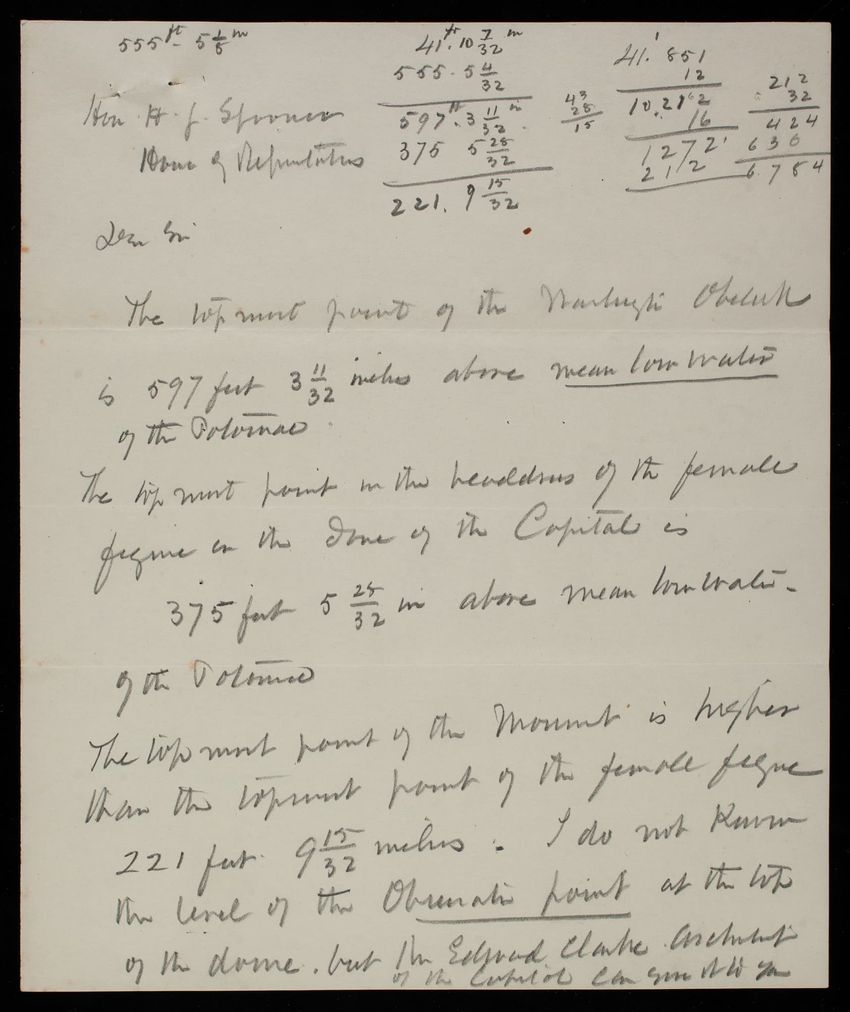 555 ft. 5 1/8 in
41 ft. 10 7/32 in
555. 5 4/32
597 ft. 3 11/32 in
375 5 28/32
221. 9 15/32
43
28
15
41. 851
12
10.212
16
1272
212
212
32
424
636
6784
Hon. H. J. Spooner
House of Representatives
Dear Sir
The topmost point of the Washington Obelisk
is 597 feet 3 11/32 inches above mean low water
of the Potomac
The top most point in the headdress of the female
figure on the Dome of the Capitol is
375 feet 5 28/32 in above mean low water
of the Potomac
The top most point of the Monument is higher
than the topmost point of the female figure
221 feet 9 15/32 inches. I do not Know
the level of the Observatn point at the top
of the dome. but Mr Edward Clarke Architect
of the Capitol can give it to you